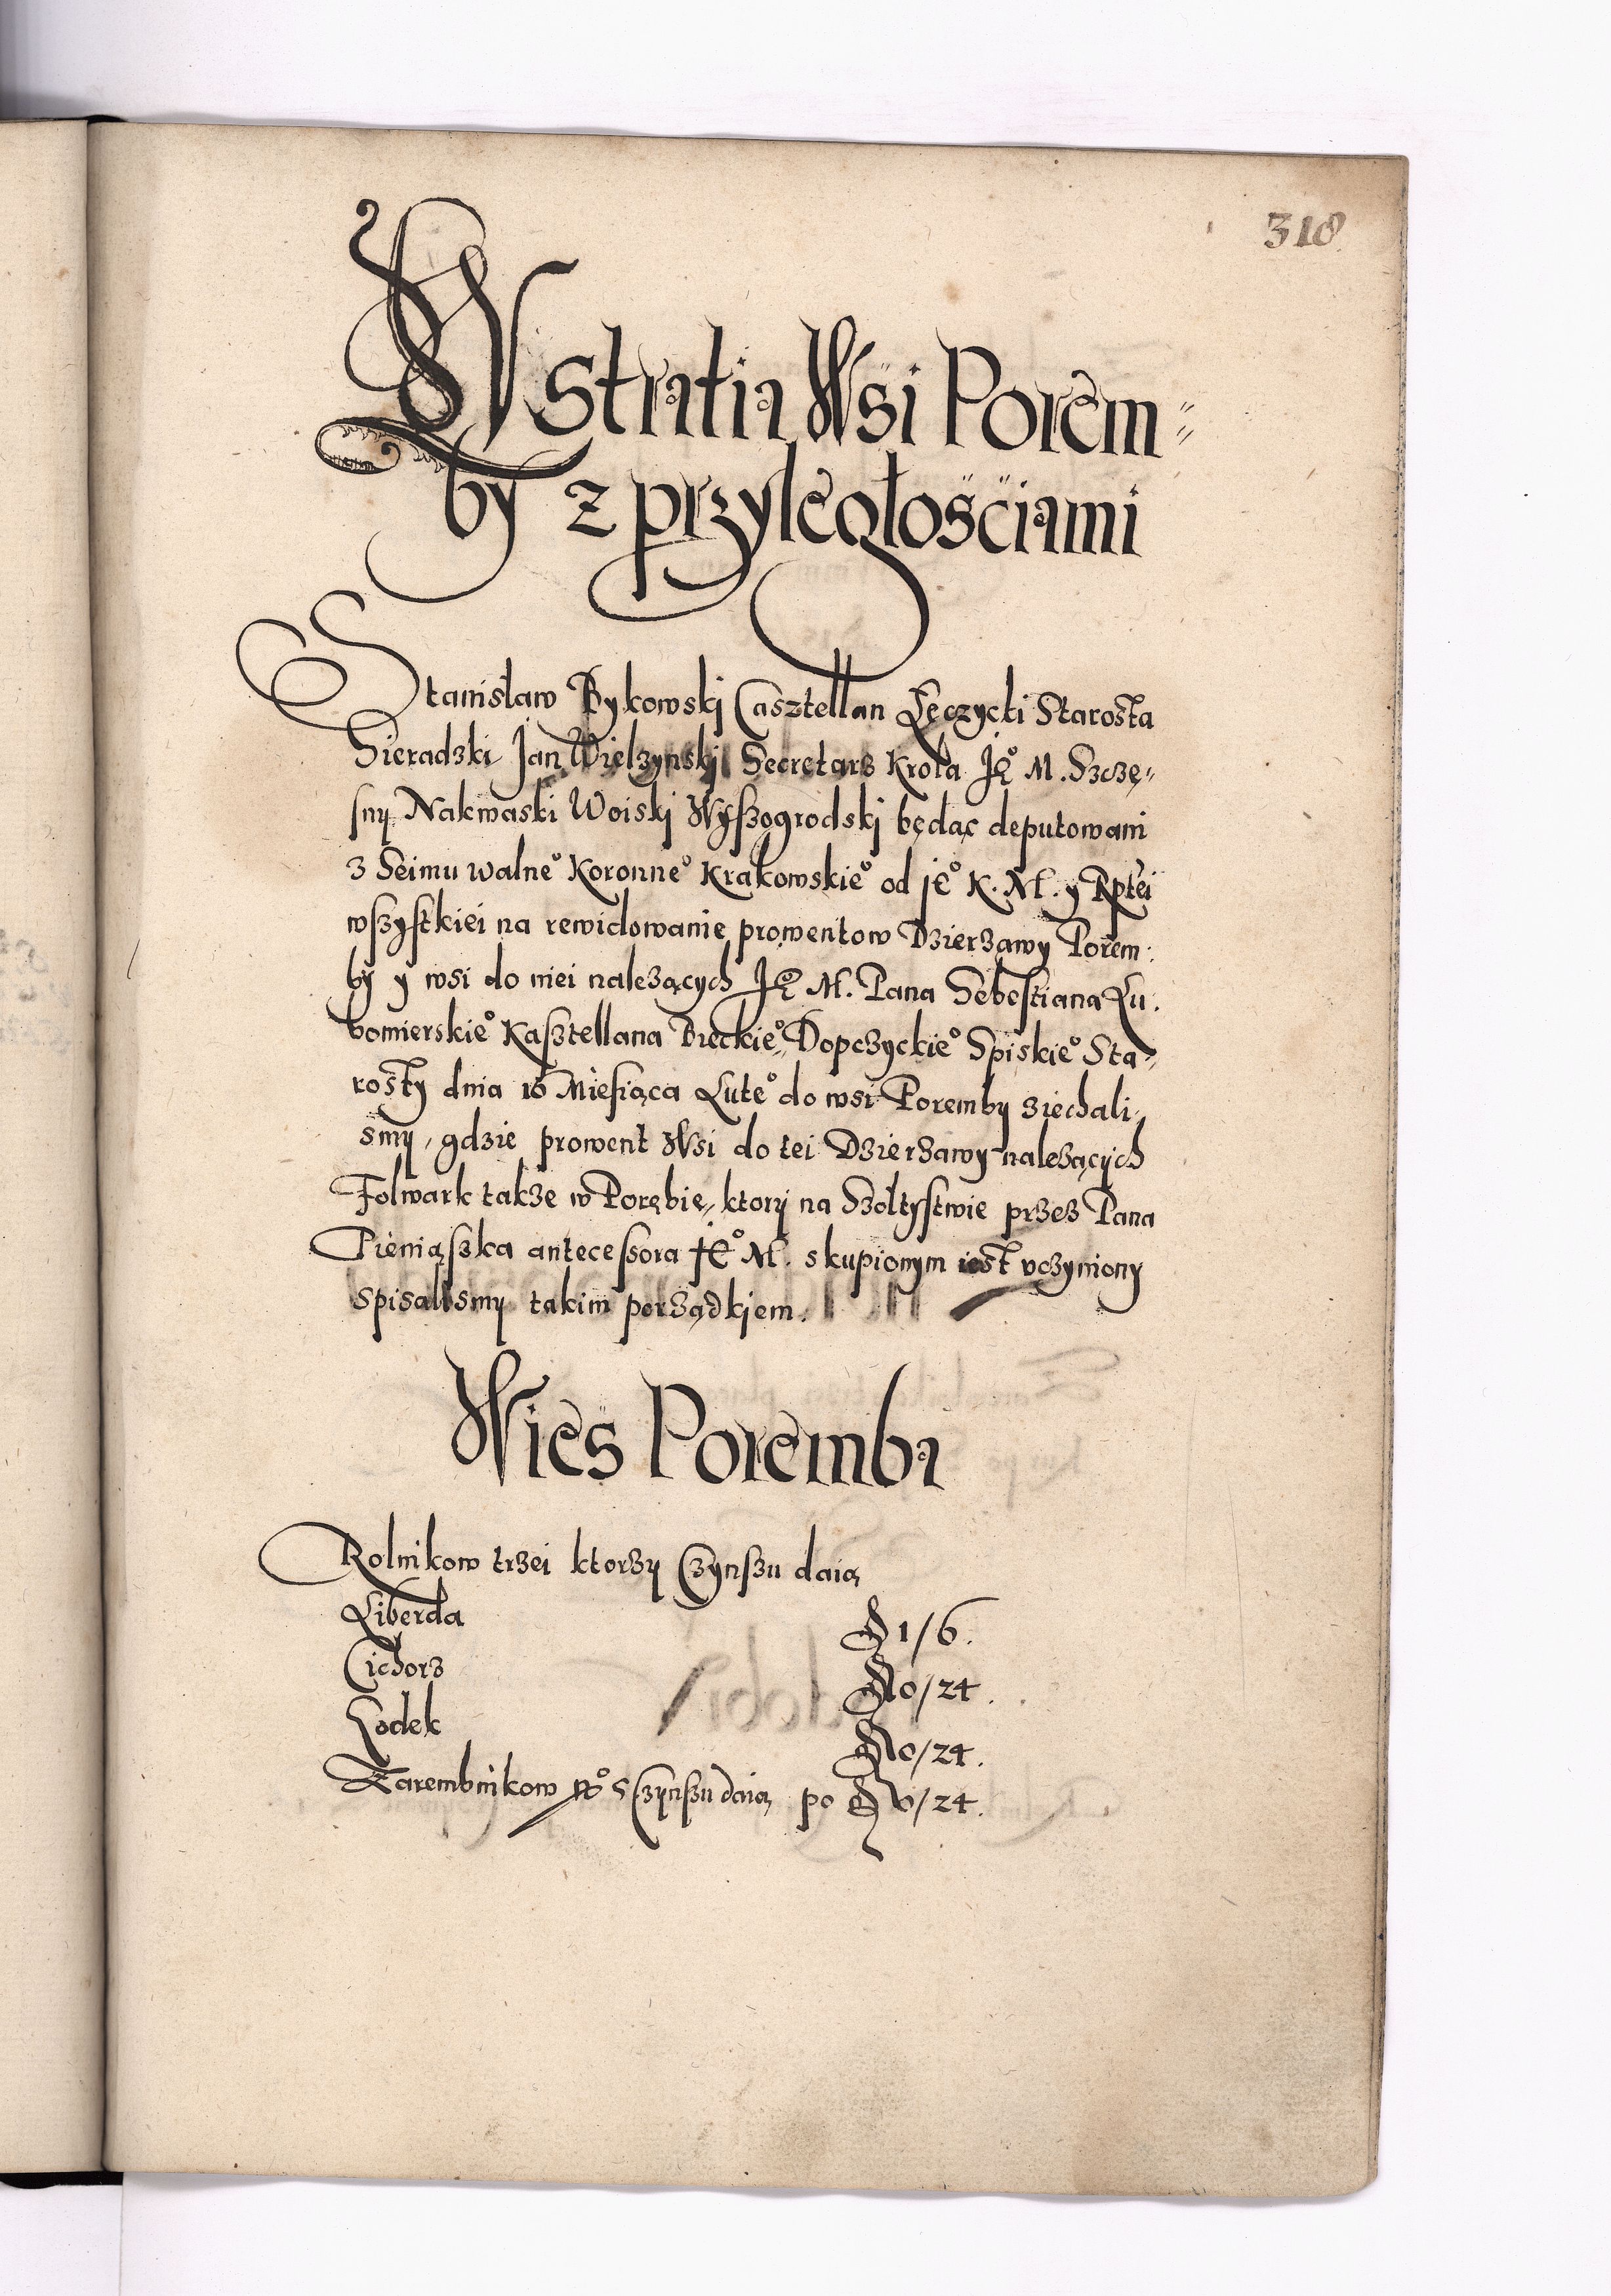 318
Wstratia Wsi Porem=
by z przyległosciami
Stanisław Bykowskj Casztellan Lęczycki Starosta
Sieradzki Jan Wielzynskj Secretarz Krola Je° M. Szczę=
sny Nakwaski Woiskj Wyszogrodskj będąc deputowani
z Seimu walne° Koronne° Krakowskie° od je° K. M. y Rptei
wszystkiei na rewidowanie prowentow Dzierzawy Porem:
by y wsi do niei nalezących Je° M. Pana Sebestiana Lu:
bomierskie° Kasztellana Bieckie° Dopczyckie° Spiskie° Sta=
rosty dnia 16 Miesiąca Lute° do wsi Poremby ziechali
smy, gdzie prowent Wsi do tei Dzierzawy nalezących
Folwark takze w Porębie, ktory na Szoltystwie przez Pana
Pieniąszka antecessora Je° M. skupionym iest uczyniony
spisalismy takim porządkiem.
Wies Poremba
Rolnikow trzei ktorzy Czynszu daią
Liberda 1/6.
Cichorz 0/24.
Lodek 0/24.
Zarembnikow n° 5 Czynszu daią po 0/24.